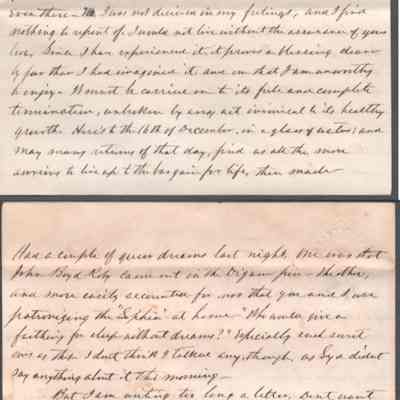 Even there - I was not deceived in my feelings, and I find
nothing to repent of. I would not live without the assurance of your
love. Since I have experienced it, it proves a blessing dearer
by far than I had imagined it and one that I am unworthy
to enjoy - It must be carried on to its full and complete
termination, unbroken by any act inimical to its healthy
growth. Here's to the 16th of December, in a glass of water; and
may many returns of that day, find us all the more
anxious to live up to the bargain for life, then made
Had a couple of queer dreams last night. One was that
John Boyd came out in the pin - the other,
and more easily accounted for was that you and I were
patronizing the "Sophia" at home - "Who wouldn't give a
farthing for sleep without dreams?" Especially such sweet
ones as this I don't think I talked any, though, as didn't
say anything about it this morning -
But I am writing too long a letter. Don't want